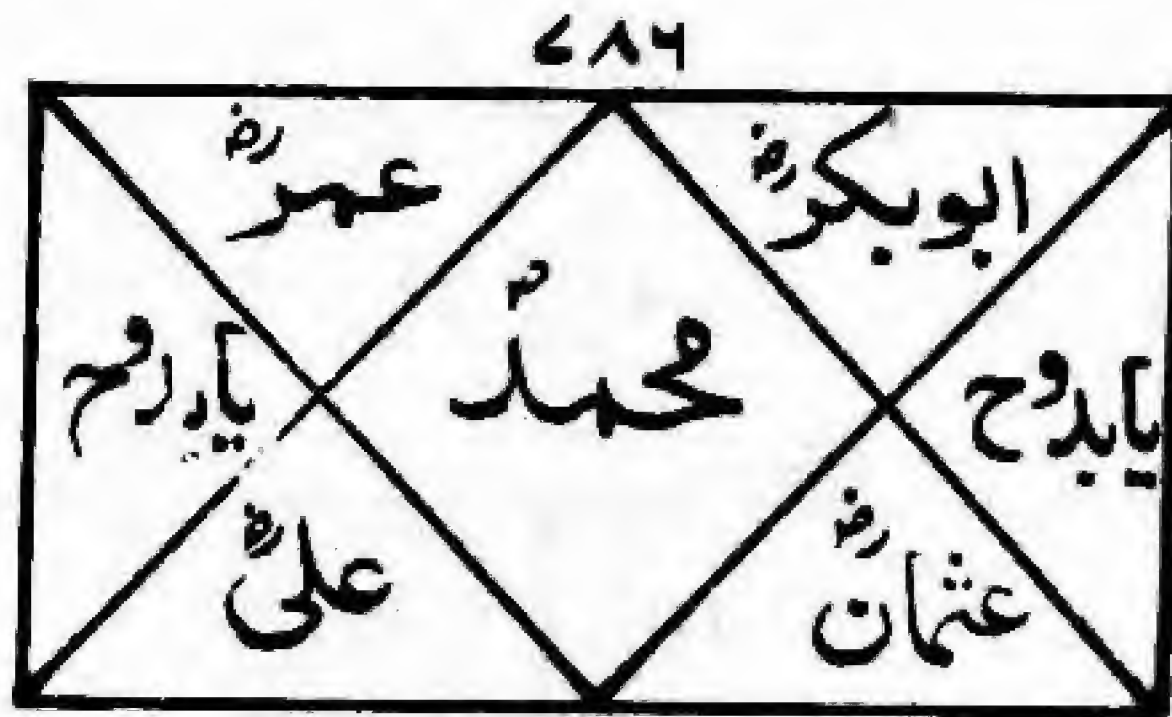 ۷۸۶
ابوبکرؓ
عمرؓ
یا بدوح
محمدؐ
یا بدوح
عثمانؓ
علیؓ